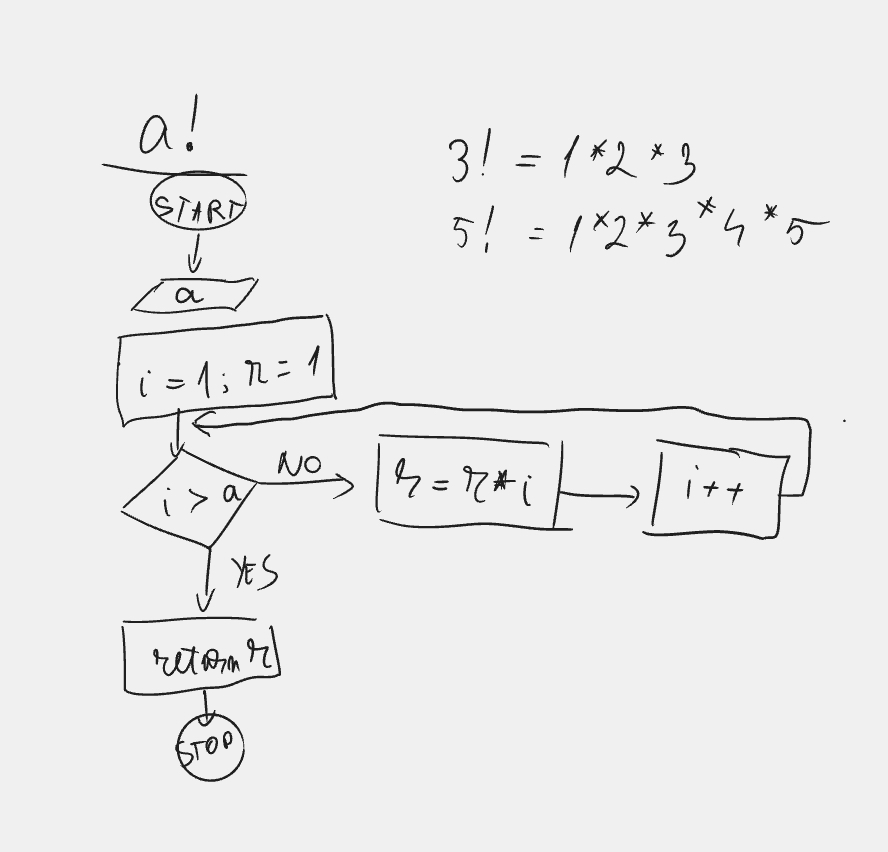 a!
3! = 1*2*3
5! = 1*2*3*4*5
START
a
i = 1; r = 1
i > a
NO
r = r * i
i++
YES
return r
STOP